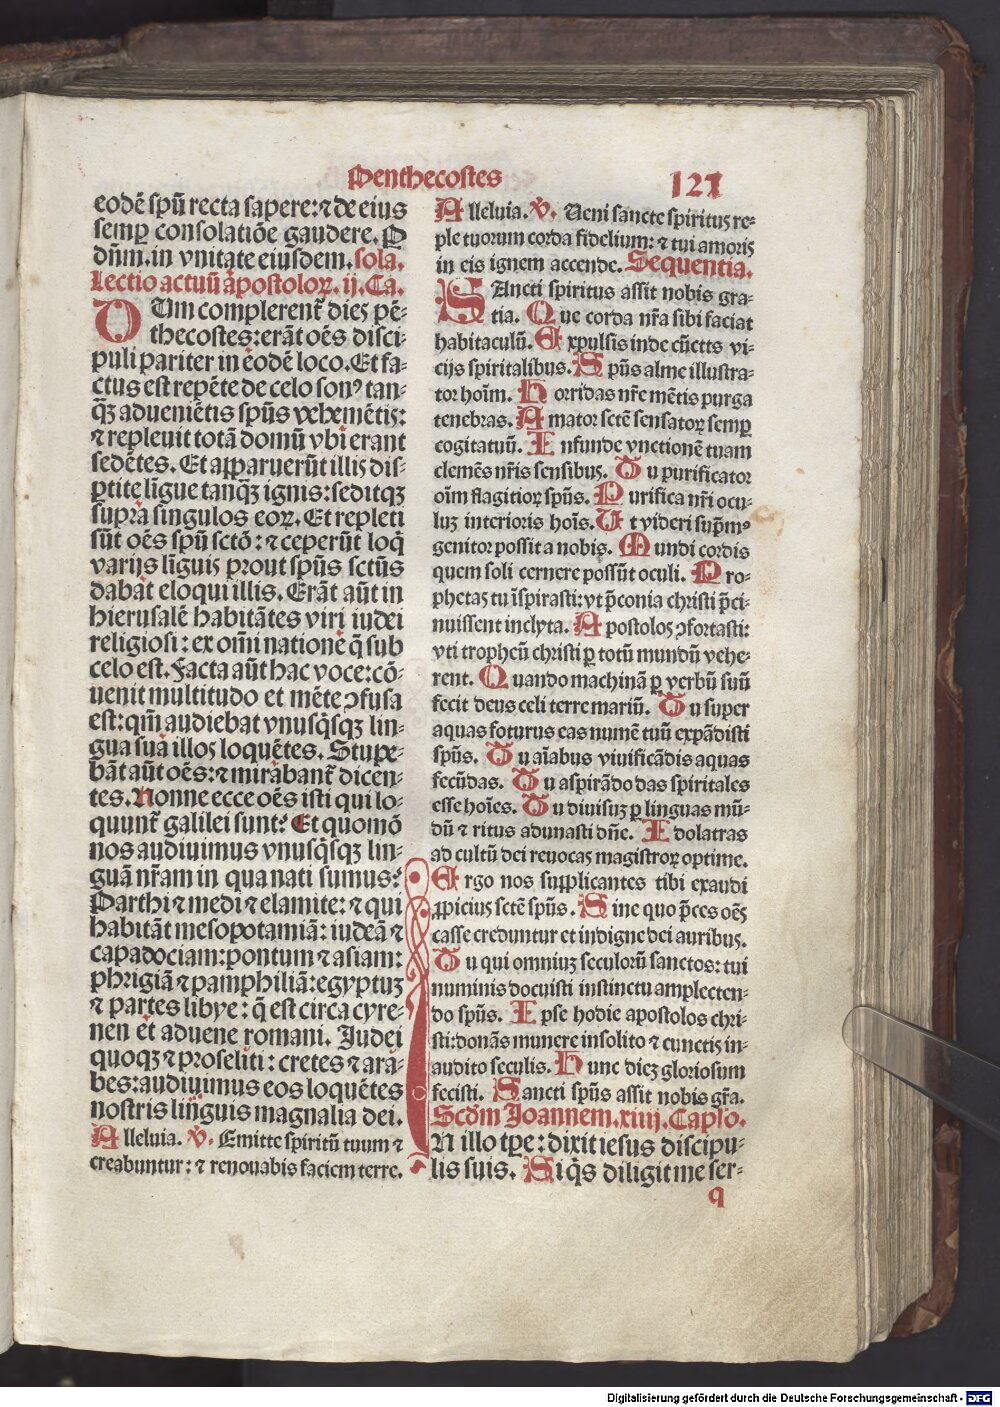 Penthecostes
127
eodē spū recta sapere: ⁊ de eius
semꝑ consolatiōe gaudere. P
dn̄m. in vnitate eiusdem. sola.
Lectio actuū apostoloꝝ. ij. Ca.
DUm complerent᷑ dies pē-
thecostes: erāt oēs disci-
puli pariter in eodē loco. Et fa-
ctus est repēte de celo sonꝰ tan-
q̄ꝫ aduenietis spūs vehemētis:
⁊ repleuit totā domū vbi erant
sedētes. Et apparuerūt illis dis-
ꝑtite līgue tanq̄ꝫ ignis: seditqꝫ
supra singulos eoꝝ. Et repleti
sūt oēs spū sctō: ⁊ ceperūt loq̄
varijs līguis prout spūs sctūs
dabat eloqui illis. Erāt aūt in
hierusalē habitātes viri iudei
religiosi: ex om̄i natione q̄ sub
celo est. Facta aūt hac voce: cō-
uenit multitudo et mēte ꝯfusa
est: qm̄ audiebat vnusq̄sqꝫ lin-
gua sua illos loquētes. Stupe-
bāt aūt oēs: ⁊ mirabant᷑ dicen-
tes. Nonne ecce oēs isti qui lo-
quunt᷑ galilei sunt? Et quomō
nos audiuimus vnusq̄sqꝫ lin-
guā nr̄am in qua nati sumus?
Parthi ⁊ medi ⁊ elamite: ⁊ qui
habitāt mesopotamiā: iudeā ⁊
capadociam: pontum ⁊ asiam:
phrigiā ⁊ pamphiliā: egyptuꝫ
⁊ partes libye: q̄ est circa cyre-
nen et aduene romani. Iudei
quoqꝫ ⁊ proseliti: cretes ⁊ ara-
bes: audiuimus eos loquētes
nostris linguis magnalia dei.
Alleluia. ℣. Emitte spiritū tuum ⁊
creabuntur: ⁊ renouabis faciem terre.
Alleluia. ℣. Ueni sancte spiritus re-
ple tuorum corda fidelium: ⁊ tui amoris
in eis ignem accende. Sequentia.
SAncti spiritus assit nobis gra-
tia. Que corda nr̄a sibi faciat
habitaculū. Expulsis inde cūctis vi-
cijs spiritalibus. Spūs alme illustra-
tor hoīm. Horridas nr̄e mētis purga
tenebras. Amator sctē sensatoꝝ semꝑ
cogitatuū. Infunde vnctionē tuam
clemēs nr̄is sensibus. Tu purificator
oīm flagitioꝝ spūs. Purifica nr̄i ocu-
luꝫ interioris hoīs. Ut videri supm̄ꝰ
genitor possit a nobis. Mundi cordis
quem soli cernere possūt oculi. Pro-
phetas tu īspirasti: vt p̄conia christi p̄ci-
nuissent inclyta. Apostolos ꝯfortasti:
vti tropheū christi ꝑ totū mundū vehe-
rent. Quando machinā ꝑ verbū suū
fecit deus celi terre mariū. Tu super
aquas foturus eas numē tuū expādisti
spūs. Tu aīabus viuificādis aquas
fecūdas. Tu aspirādo das spiritales
esse hoīes. Tu diuisuꝫ ꝑ linguas mū-
dū ⁊ ritus adunasti dn̄e. Idolatras
ad cultū dei reuocas magistroꝝ optime.
Ergo nos supplicantes tibi exaudi
ꝓpicius sctē spūs. Sine quo p̄ces oēs
casse creduntur et indigne dei auribus.
Tu qui omniuꝫ seculorū sanctos: tui
numinis docuisti instinctu amplecten-
do spūs. Ipse hodie apostolos chri-
sti: donās munere insolito ⁊ cunctis in-
audito seculis. Hunc dieꝫ gloriosum
fecisti. Sancti spūs assit nobis gr̄a.
Scd̄m Joannem. xiiij. Caplo.
IN illo tꝑe: dixit iesus discipu-
lis suis. Si q̄s diligit me ser-
q
Digitalisierung gefördert durch die Deutsche Forschungsgemeinschaft - DFG